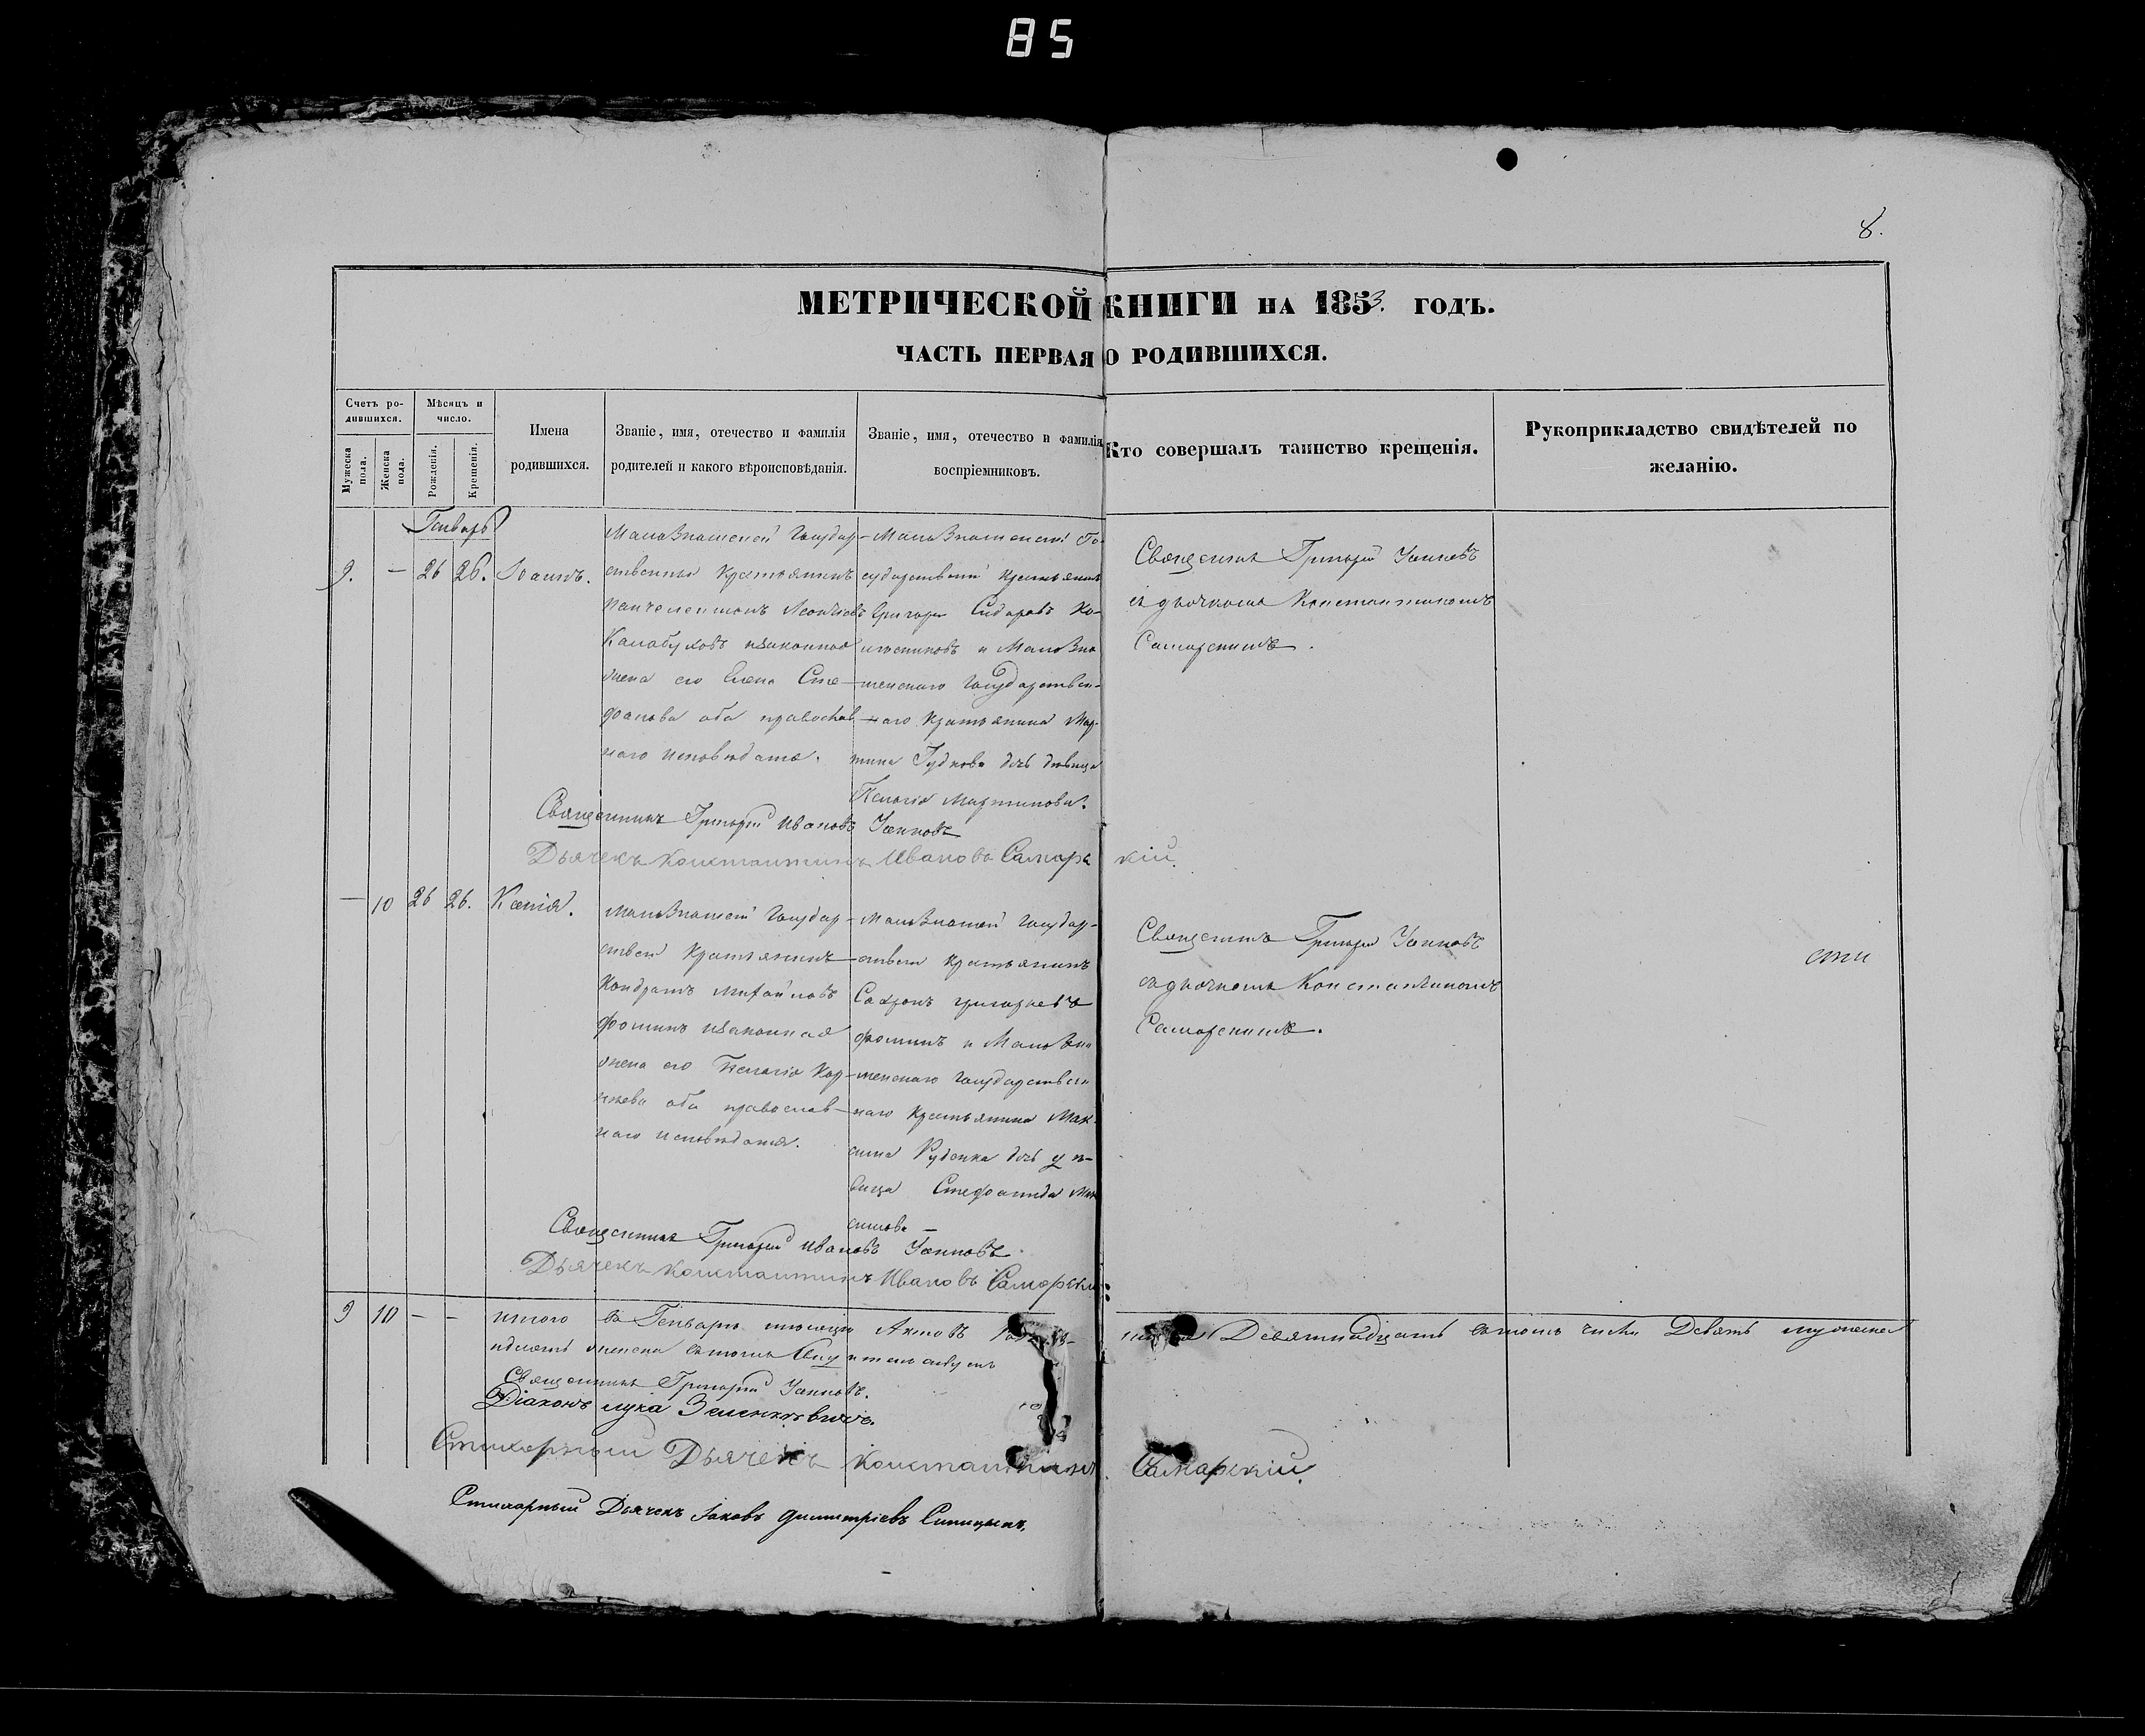 85
8.
МЕТРИЧЕСКОЙ КНИГИ НА 1853. ГОДЪ.
ЧАСТЬ ПЕРВАЯ О РОДИВШИХСЯ.
Счетъ ро-
дившихся.
Мужеска пола.
Женска пола.
Мѣсяцъ и
число.
Рожденія.
Крещенія.
Имена
родившихся.
Званіе, имя, отечество и фамилія
родителей и какого вѣроисповѣданія.
Званіе, имя, отечество и фамилія
воспріемниковъ.
Кто совершалъ таинство крещенія.
Рукоприкладство свидѣтелей по
желанію.
Генварь
9. — 26 26. Іоаннъ.
Маловзнаменской Государ-
ственный крестьянинъ
Пантелеимонъ Леонтіевъ
Калабуховъ изаконная
жена его Елена Сте-
фанова оба православ-
наго исповѣданія.
Маловзнаменскій Го-
сударственный крестьянинъ
Григорій Сидоровъ Ко-
и
менскаго Государствен-
наго крестьянина Мар-
тина Гудкова дочь дѣвица
Пелагія Мартинова.
Священникъ Григорій Уенновъ
съ дьячкомъ Константиномъ
Самарскимъ.
Священникъ Григорій Ивановъ Уенновъ
Дьячекъ Константинъ Ивановъ Самарскій.
— 10 26 26. Ксенія.
Государ-
ствен крестьянинъ
Кондратъ Михайловъ
Фоминъ изаконная
жена его Пелагія Кор-
нѣева оба православ-
наго исповѣданія.
Государ-
ствен крестьянинъ
Софронъ Григорьевъ
Фоминъ и
менскаго Государствен
наго крестьянина Мак-
сима Руденка дочь дѣ-
вица Стефанида Мак
симова —
Священникъ Григорій Уенновъ
съ дьячкомъ Константиномъ
Самарскимъ.
сти
Священникъ Григорій Ивановъ Уенновъ
Дьячекъ Константинъ Ивановъ Самарскій
9 10 — — Итого въ Генварѣ мѣсяцѣ Актовъ Девятнадцать втомъ числѣ Девять мужеска
идесять женска втомъ свидѣтельствуемъ
Священникъ Григорій Уенновъ.
Діаконъ Лука Зеленкѣвичъ.
Стихарный Дьячекъ Константинъ Самарскій.
Стихарный Дьячекъ Іаковъ Димитріевъ Синицынъ.